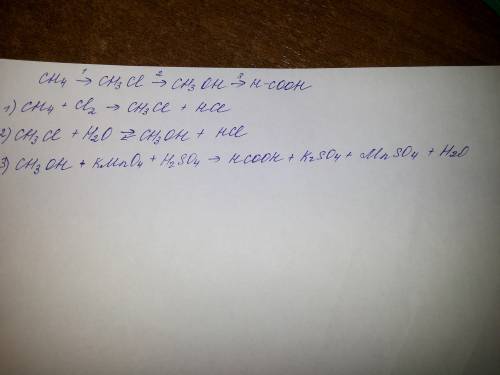 CH4 →1 CH3Cl →2 CH3OH →3 H-COOH
1) CH4 + Cl2 → CH3Cl + HCl
2) CH3Cl + H2O ⇄ CH3OH + HCl
3) CH3OH + KMnO4 + H2SO4 → HCOOH + K2SO4 + MnSO4 + H2O